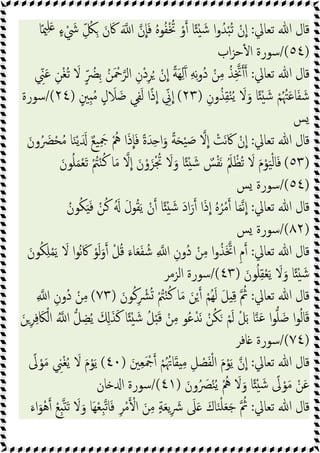 قال الله تعالى: إِنْ تُبْدُوا شَيْئًا أَوْ تُخْفُوهُ فَإِنَّ اللَّهَ كَانَ بِكُلِّ شَيْءٍ عَلِيمًا
(٥٤)/سورة الأحزاب
قال الله تعالى: أَأَتَّخِذُ مِنْ دُونِهِ آلِهَةً إِنْ يُرِدْنِ الرَّحْمَنُ بِضُرٍّ لَا تُغْنِ عَنِّي
شَفَاعَتُهُمْ شَيْئًا وَلَا يُنْقِذُونِ (٢٣) إِنِّي إِذًا لَفِي ضَلَالٍ مُبِينٍ (٢٤)/سورة
يس
قال الله تعالى: إِنْ كَانَتْ إِلَّا صَيْحَةً وَاحِدَةً فَإِذَا هُمْ جَمِيعٌ لَدَيْنَا مُحْضَرُونَ
(٥٣) فَالْيَوْمَ لَا تُظْلَمُ نَفْسٌ شَيْئًا وَلَا تُجْزَوْنَ إِلَّا مَا كُنْتُمْ تَعْمَلُونَ
(٥٤)/سورة يس
قال الله تعالى: إِنَّمَا أَمْرُهُ إِذَا أَرَادَ شَيْئًا أَنْ يَقُولَ لَهُ كُنْ فَيَكُونُ
(٨٢)/سورة يس
قال الله تعالى: أَمِ اتَّخَذُوا مِنْ دُونِ اللَّهِ شُفَعَاءَ قُلْ أَوَلَوْ كَانُوا لَا يَمْلِكُونَ
شَيْئًا وَلَا يَعْقِلُونَ (٤٣)/سورة الزمر
قال الله تعالى: ثُمَّ قِيلَ لَهُمْ أَيْنَ مَا كُنْتُمْ تُشْرِكُونَ (٧٣) مِنْ دُونِ اللَّهِ
قَالُوا ضَلُّوا عَنَّا بَلْ لَمْ نَكُنْ نَدْعُو مِنْ قَبْلُ شَيْئًا كَذَلِكَ يُضِلُّ اللَّهُ الْكَافِرِينَ
(٧٤)/سورة غافر
قال الله تعالى: إِنَّ يَوْمَ الْفَصْلِ مِيقَاتُهُمْ أَجْمَعِينَ (٤٠) يَوْمَ لَا يُغْنِي مَوْلًى
عَنْ مَوْلًى شَيْئًا وَلَا هُمْ يُنْصَرُونَ (٤١)/سورة الدخان
قال الله تعالى: ثُمَّ جَعَلْنَاكَ عَلَى شَرِيعَةٍ مِنَ الْأَمْرِ فَاتَّبِعْهَا وَلَا تَتَّبِعْ أَهْوَاءَ